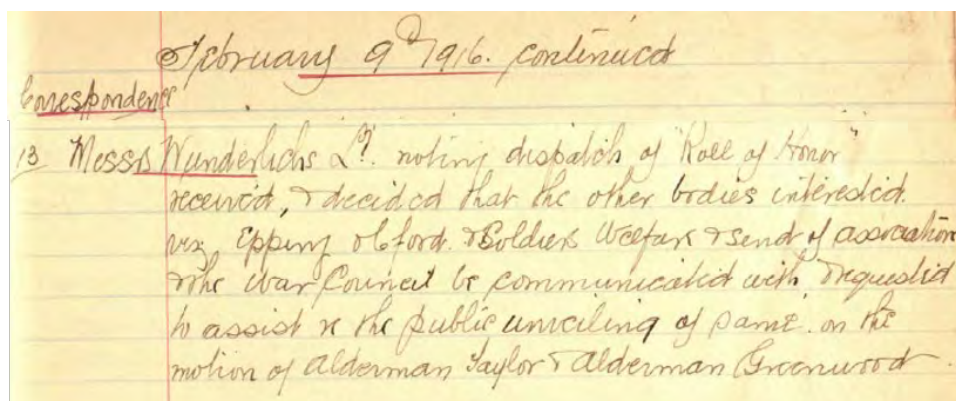 February 9th 1916. continued
Correspondence
13 Messrs Wunderlichs Ld. noting dispatch of "Roll of Honor"
received, & decided that the other bodies interested.
viz Epping & Soldiers Welfare & Send of association
& the War Council be communicated with, & requested
to assist re the public unveiling of same. on the
motion of Alderman Taylor & Alderman Greenwood.